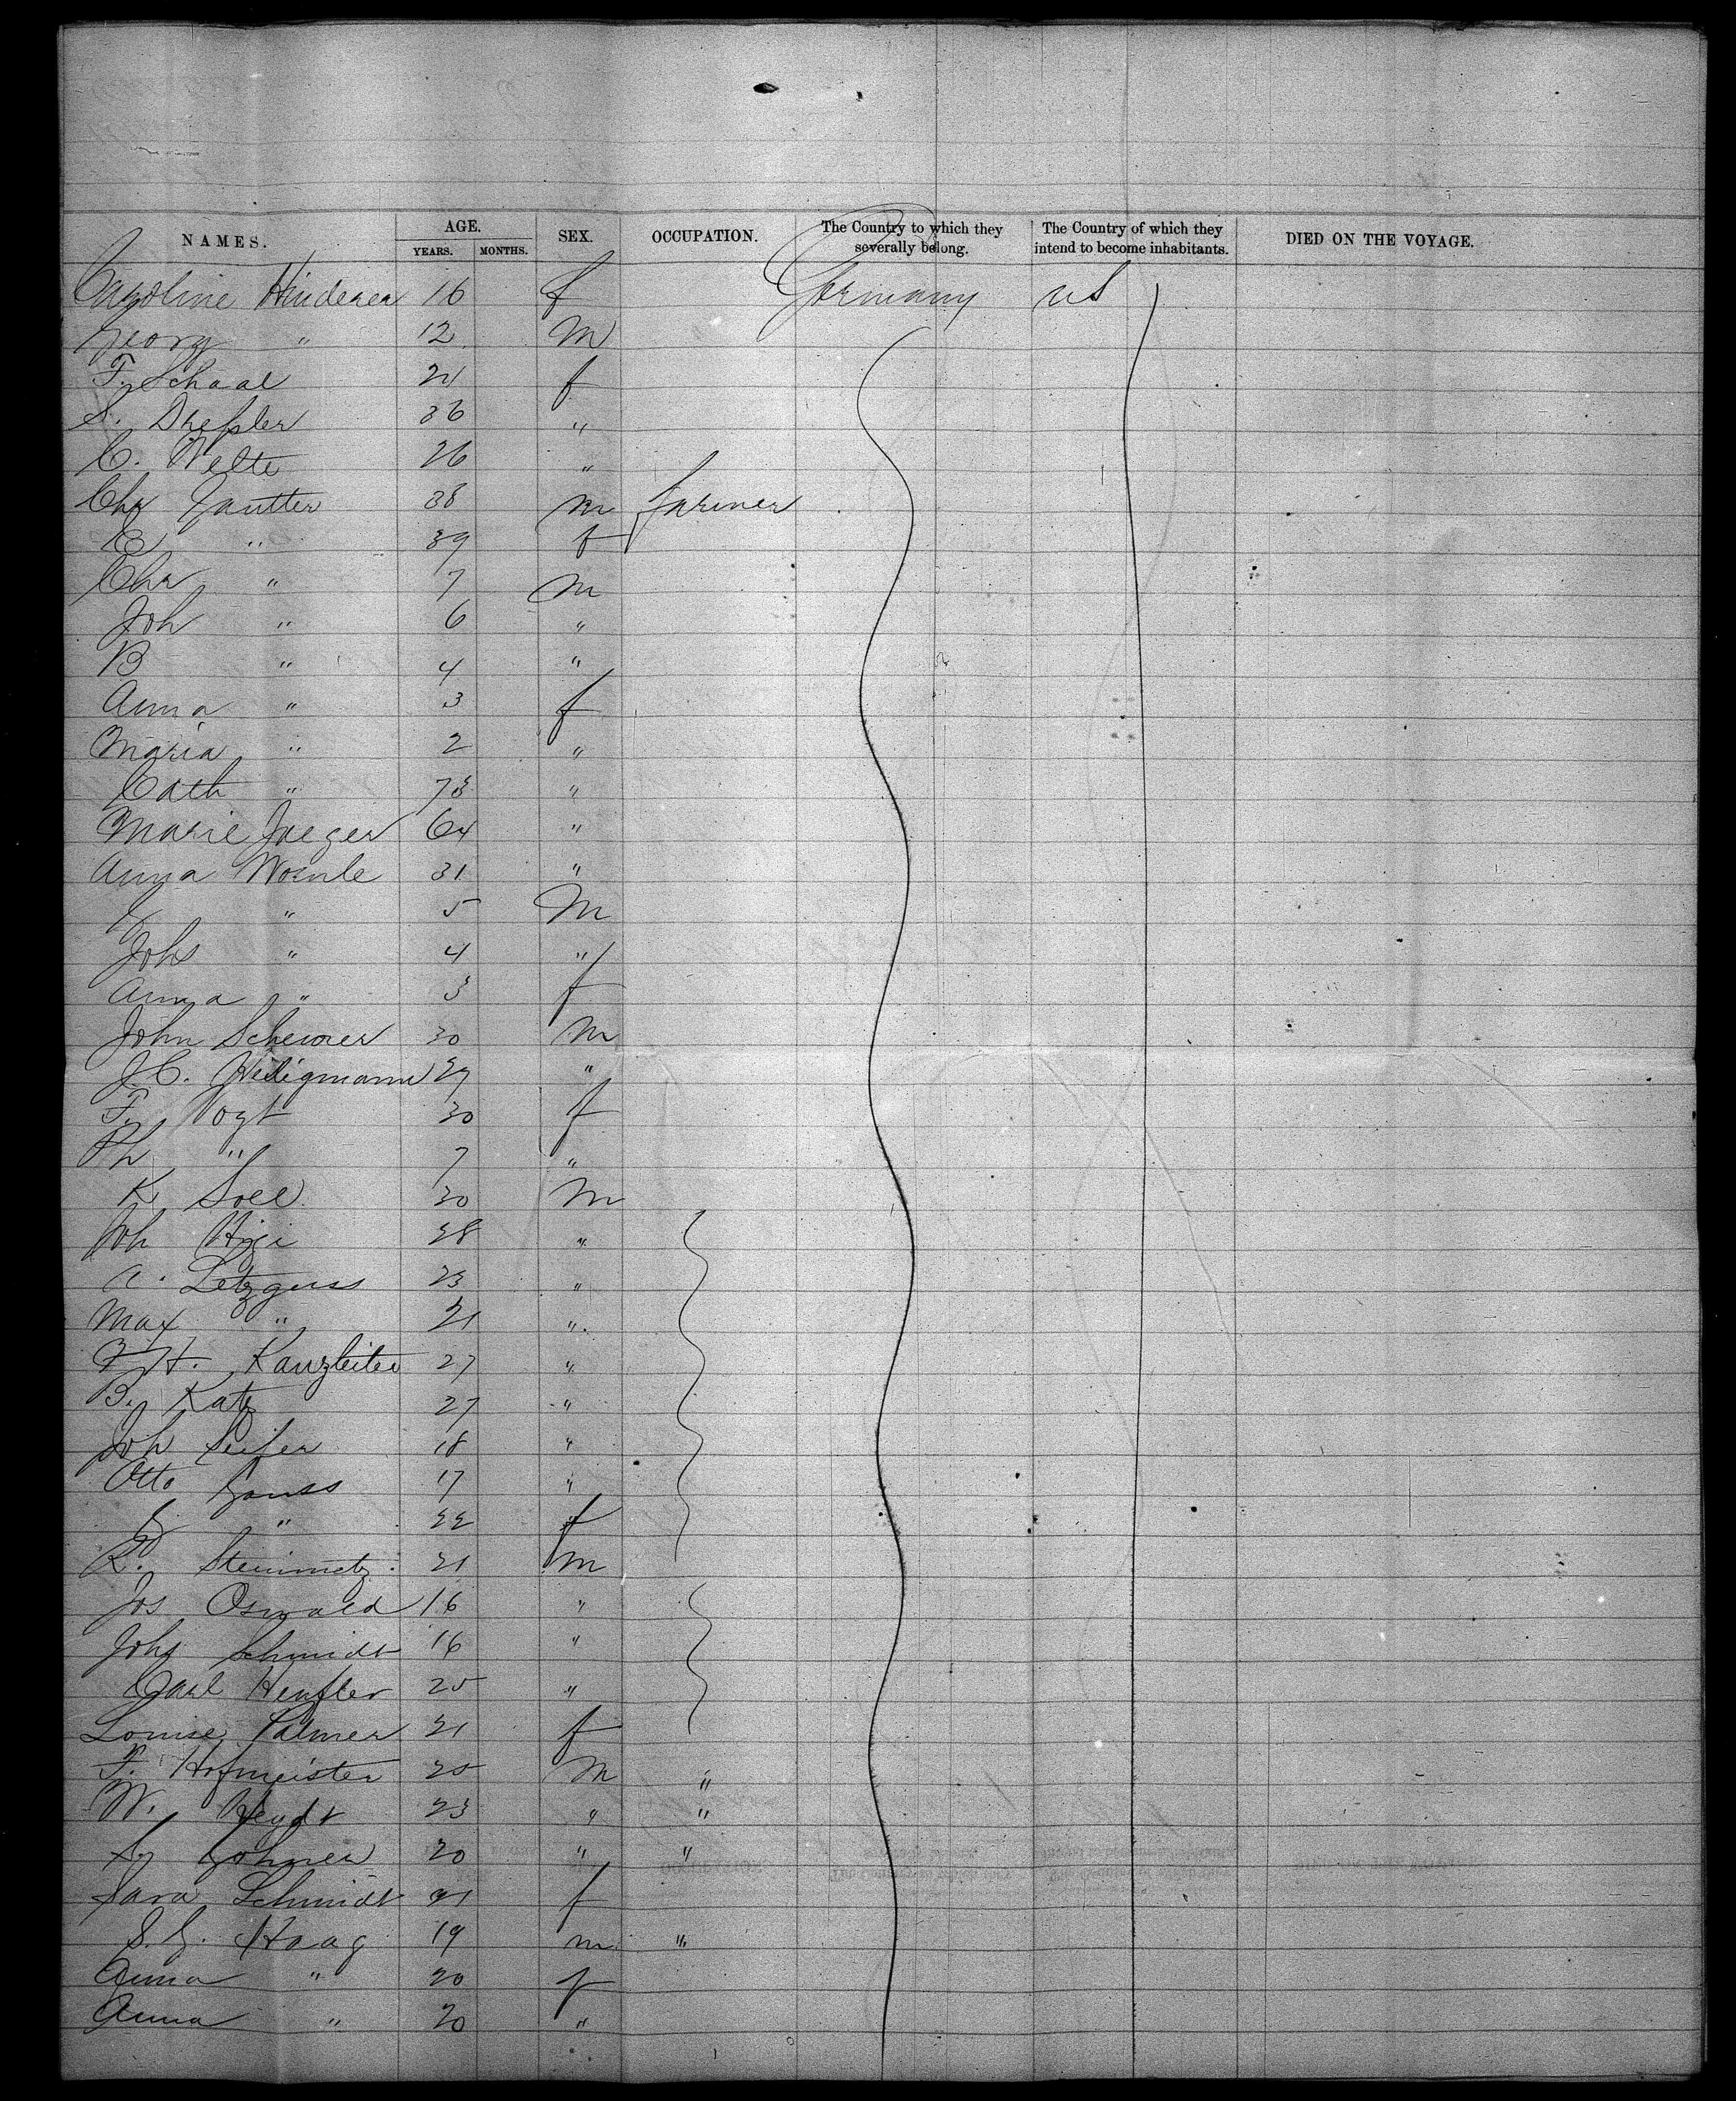 NAMES. AGE. YEARS. MONTHS. SEX. OCCUPATION. The Country to which they severally belong. The Country of which they intend to become inhabitants. DIED ON THE VOYAGE.
Caroline Hinderer 16 f Germany US
Georg " 12 M
F. Schaal 21 f
S. Dreßler 36 "
C. Welte 26 "
Chr Gautter 38 m farmer
E " 39 f
Chr " 7 m
Joh " 6 "
B " 4 "
Anna " 3 f
Maria " 2 "
Cath " 73 "
Marie Jaeger 64 "
Anna Woernle 31 "
" 5 M
Johs " 4 "
Anna " 3 f
John Scheurer 30 m
J.C. 29 "
F. Vogt 30 f
Ph " 7 "
K Soll 30 m
Joh Higi 28 "
A. Letzguss 23 "
Max " 21 "
H. Kanzleiter 27 "
B. Katz 27 "
Joh Seifer 18 "
Otto Gauss 17 "
G " 22 f
R. Steinmetz 21 m
Jos Oswald 16 "
Johs Schmidt 16 "
Carl Henßler 25 "
Louise Palmer 21 f
F. Hofmeister 25 m "
W. Heydt 23 " "
S. Gohner 20 " "
Sara Schmidt 21 f
S. G. Haag 19 m "
Anna " 20 f
Anna " 20 "